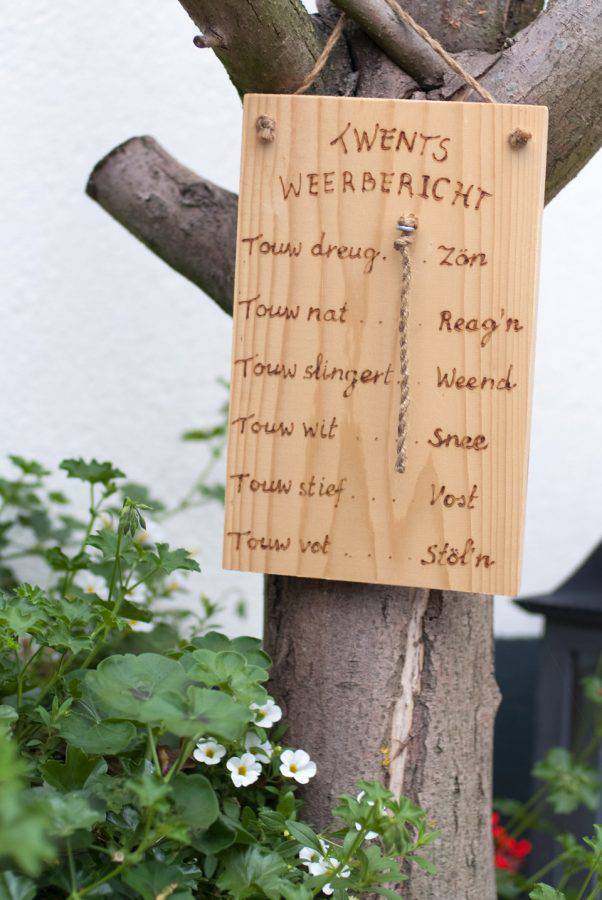 TWENTS
WEERBERICHT
Touw dreug. . Zön
Touw nat . . . Reag'n
Touw slingert . . Weend
Touw wit . . . Snee
Touw stief . . . . Vost
Touw vot . . . . . Stöl'n